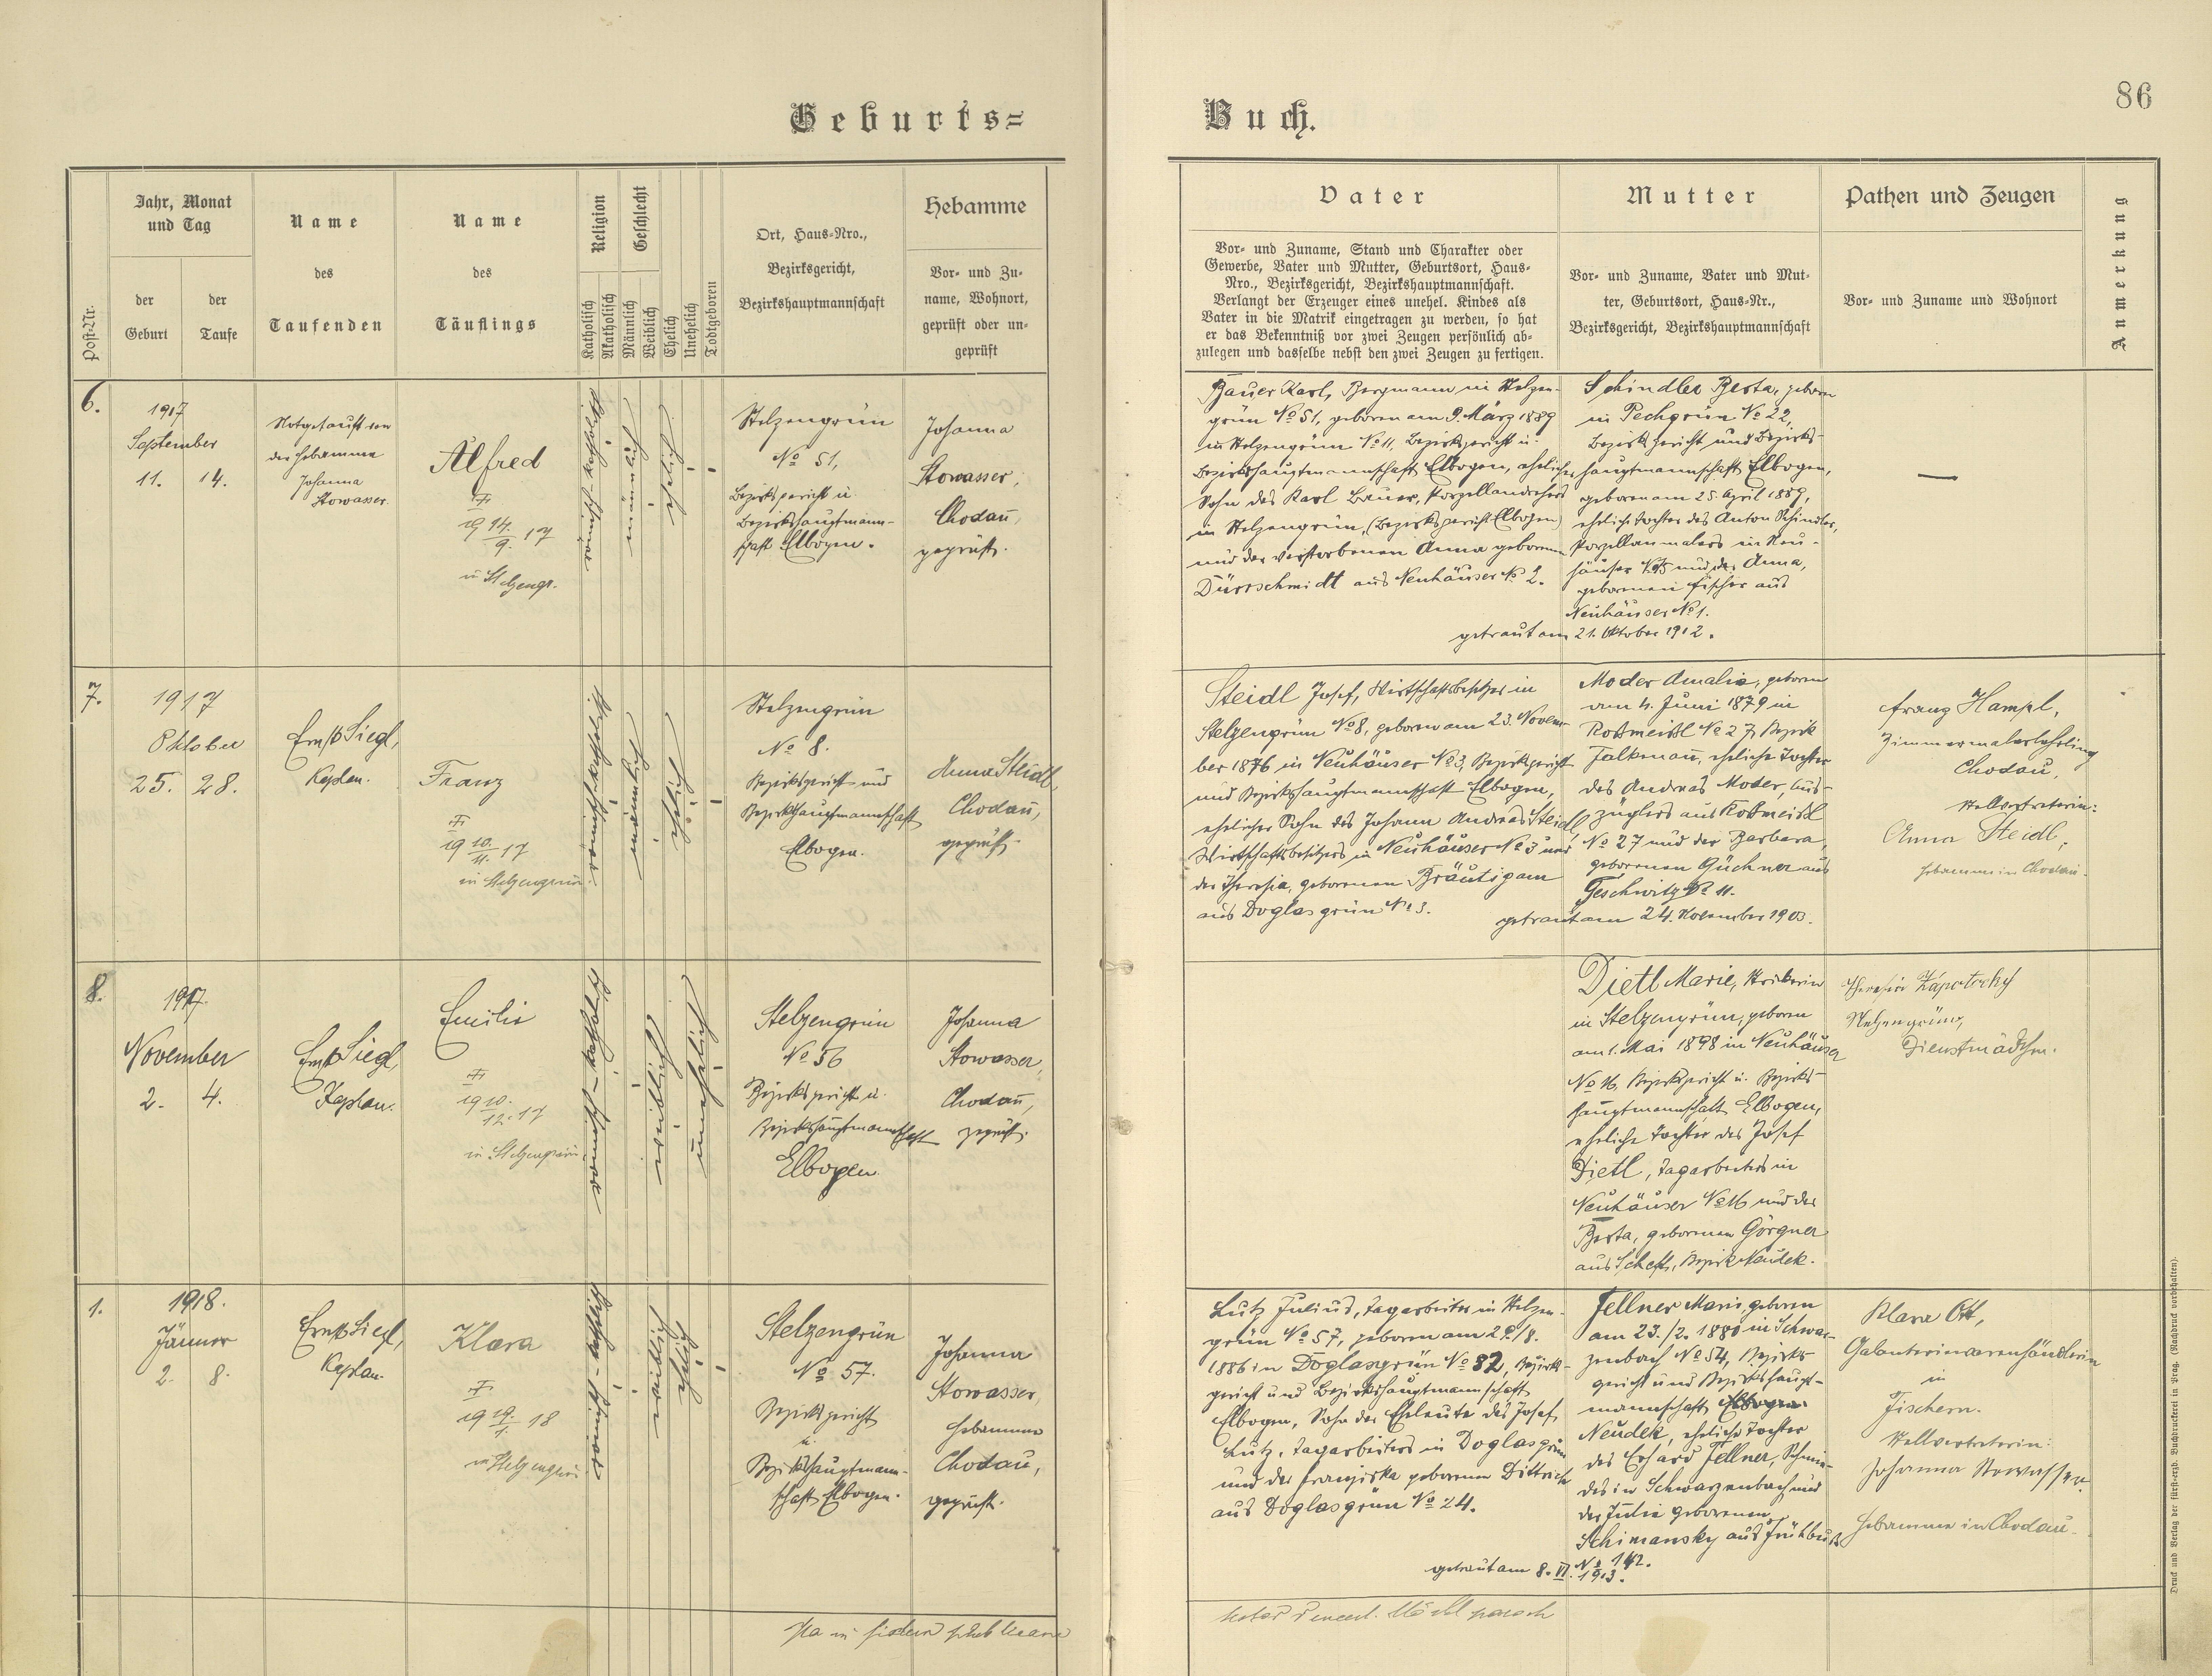 Geburts=
Buch.
86
Post-Nr.
Jahr, Monat
und Tag
der
Geburt
der
Taufe
Name
des
Taufenden
Name
des
Täuflings
Religion
Katholisch
Akatholisch
Geschlecht
Männlich
Weiblich
Ehelich
Unehelich
Todtgeboren
Ort, Haus=Nro.,
Bezirksgericht,
Bezirkshauptmannschaft
Hebamme
Vor= und Zu=
name, Wohnort,
geprüft oder un=
geprüft
Vater
Vor= und Zuname, Stand und Charakter oder
Gewerbe, Vater und Mutter, Geburtsort, Haus=
Nro., Bezirksgericht, Bezirkshauptmannschaft.
Verlangt der Erzeuger eines unehel. Kindes als
Vater in die Matrik eingetragen zu werden, so hat
er das Bekenntniß vor zwei Zeugen persönlich ab=
zulegen und dasselbe nebst den zwei Zeugen zu fertigen.
Mutter
Vor= und Zuname, Vater und Mut=
ter, Geburtsort, Haus=Nr.,
Bezirksgericht, Bezirkshauptmannschaft
Pathen und Zeugen
Vor= und Zuname und Wohnort
Anmerkung
6.
1917
September
11. 14.
Notgetauft von
der Hebamme
Johanna
Stowasser.
Alfred
19 14./9. 17
in Stelzengr.
römisch-katholisch
männlich
ehelich
Stelzengrün
No 51,
Bezirksgericht u.
Bezirkshauptmann-
schaft Elbogen.
Johanna
Stowasser,
Chodau,
geprüft.
Bauer Karl, Bergmann in Stelzen-
grün No 51, geboren am 9. März 1889
in Stelzengrün No 11, Bezirksgericht u.
Bezirkshauptmannschaft Elbogen, ehelicher
Sohn des Karl Bauer, Porzellandrehers
in Stelzengrün, (Bezirksgericht Elbogen)
und der verstorbenen Anna geborenen
Dürrschmidt aus Neuhäuser No 2.
Schindler Berta, geboren
in Pechgrün No 22,
Bezirksgericht und Bezirks-
hauptmannschaft Elbogen,
geboren am 25. April 1889,
ehelich Tochter des Anton Schindler,
Porzellanmalers in Neu-
häuser und der Anna,
geborenen Fischer aus
Neuhäuser No 1.
getraut am 21. Oktober 1912.
7.
1917
Oktober
25. 28.
Ernst Siegl,
Kaplan.
Franz
19 10./11. 17
in Stelzengrün.
römisch-katholisch
männlich
ehelich
Stelzengrün
No 8.
Bezirksgericht und
Bezirkshauptmannschaft
Elbogen.
Anna Steidl,
Chodau,
geprüft.
Steidl Josef, Wirtschaftsbesitzer in
Stelzengrün No 8, geboren am 23. Novem-
ber 1876 in Neuhäuser No 3, Bezirksgericht
und Bezirkshauptmannschaft Elbogen,
ehelicher Sohn des Johann Andreas Steidl,
Wirtschaftsbesitzers in Neuhäuser No 3 und
der Theresia, geborenen Bräutigam
aus Doglasgrün No 3.
Moder Amalia, geboren
am 4. Juni 1879 in
Roßmeisl No 27, Bezirk
Falkenau, eheliche Tochter
des Andreas Moder, Aus-
züglers aus Roßmeisl
No 27 und der Barbara,
geborenen Güchner aus
Geschwitz No 11.
getraut am 24. November 1903.
Franz Hampl,
Zimmermalerlehrling
Chodau,
Stellvertreterin:
Anna Steidl,
Hebamme in Chodau.
8.
1917.
November
2. 4.
Ernst Siegl,
Kaplan.
Emilie
19 10./12. 17
in Stelzengrün.
römisch-katholisch
weiblich
unehelich
Stelzengrün
No 56
Bezirksgericht u.
Bezirkshauptmannschaft
Elbogen.
Johanna
Stowasser,
Chodau,
geprüft.
Dietl Marie,
in Stelzengrün, geboren
am 1. Mai 1898 in Neuhäuser
No 16, Bezirksgericht u. Bezirks-
hauptmannschaft Elbogen,
eheliche Tochter des Josef
Dietl, Tagarbeiters in
Neuhäuser No 16 und der
Berta, geborenen Görgner
aus Schest, Bezirk Neudek.
Theresia Zápotocky
Stelzengrün,
Dienstmädchen.
1.
1918.
Jänner
2. 8.
Ernst Siegl,
Kaplan.
Klara
19 19./1. 18
in Stelzengrün
römisch-katholisch
weiblich
ehelich
Stelzengrün
No 57.
Bezirksgericht
u.
Bezirkshauptmann-
schaft Elbogen.
Johanna
Stowasser,
Hebamme
Chodau,
geprüft.
Lutz Julius, Tagarbeiter in Stelzen-
grün No 57, geboren am 29./8.
1886 in Doglasgrün No 82, Bezirks-
gericht und Bezirkshauptmannschaft
Elbogen, Sohn der Eheleute des Josef
Lutz, Tagarbeiters in Doglasgrün
und der Franziska geborenen Dittrich
aus Doglasgrün No 24.
Fellner Marie, geboren
am 23./2. 1880 in Schwar-
zenbach No 54, Bezirks-
gericht und Bezirkshaupt-
mannschaft Elbogen
Neudek, eheliche Tochter
des Erhard Fellner, Schmie-
des in Schwarzenbach und
der Julie geborenen
Schimansky aus Frühbuß
No 142.
getraut am 8. VI. 1913.
Klara Ott,
Galanteriewarenhändlerin
in
Fischern.
Stellvertreterin:
Johanna Stowasser
Hebamme in Chodau.
Druck und Verlag der fürst=erzb. Buchdruckerei in Prag. (Nachdruck vorbehalten).